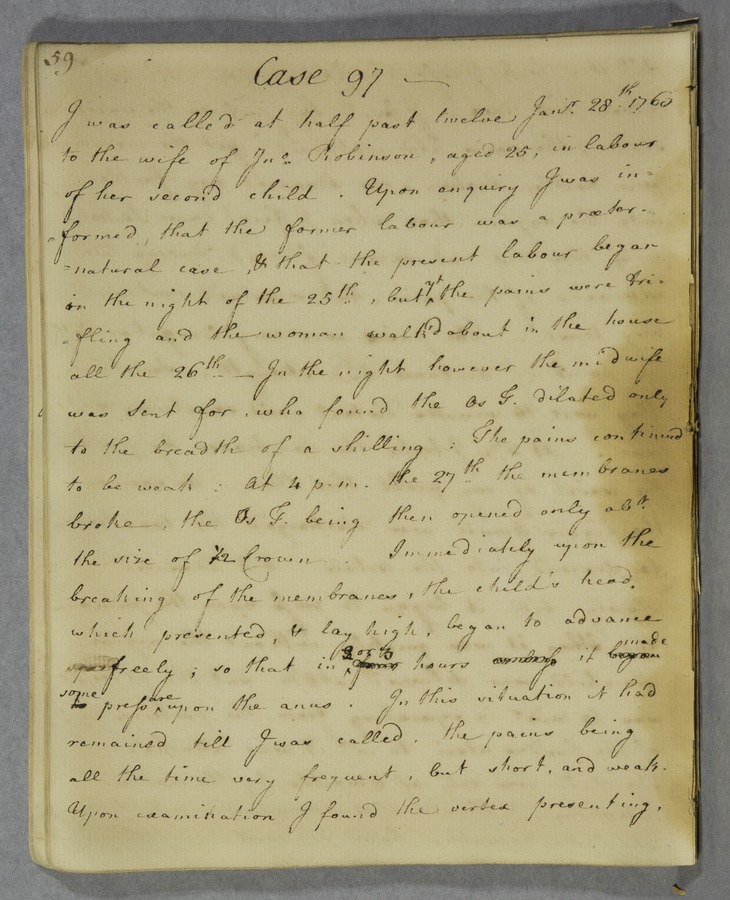 59
Case 97 —
I was called at half past twelve Janr. 28th. 1760
to the wife of Jno. Robinson, aged 25, in labour
of her second child. Upon enquiry I was in-
-formed, that the former labour was a præter-
-natural case, & that the present labour began
in the night of the 25th., but yt the pains were tri-
-fling and the woman walk'd about in the house
all the 26th. — In the night however the midwife
was sent for, who found the Os T. dilated only
to the breadth of a shilling: The pains continued
to be weak: At 4 p.m. the 27th the membranes
broke, the Os T. being then opened only abt.
the size of ½ Crown. Immediately upon the
breaking of the membranes, the child's head,
which presented, & lay high, began to advance
freely; so that in 2 or 3 hours it made
some pressure upon the anus. In this situation it had
remained till I was called, the pains being
all the time very frequent, but short, and weak.
Upon examination I found the vertex presenting,